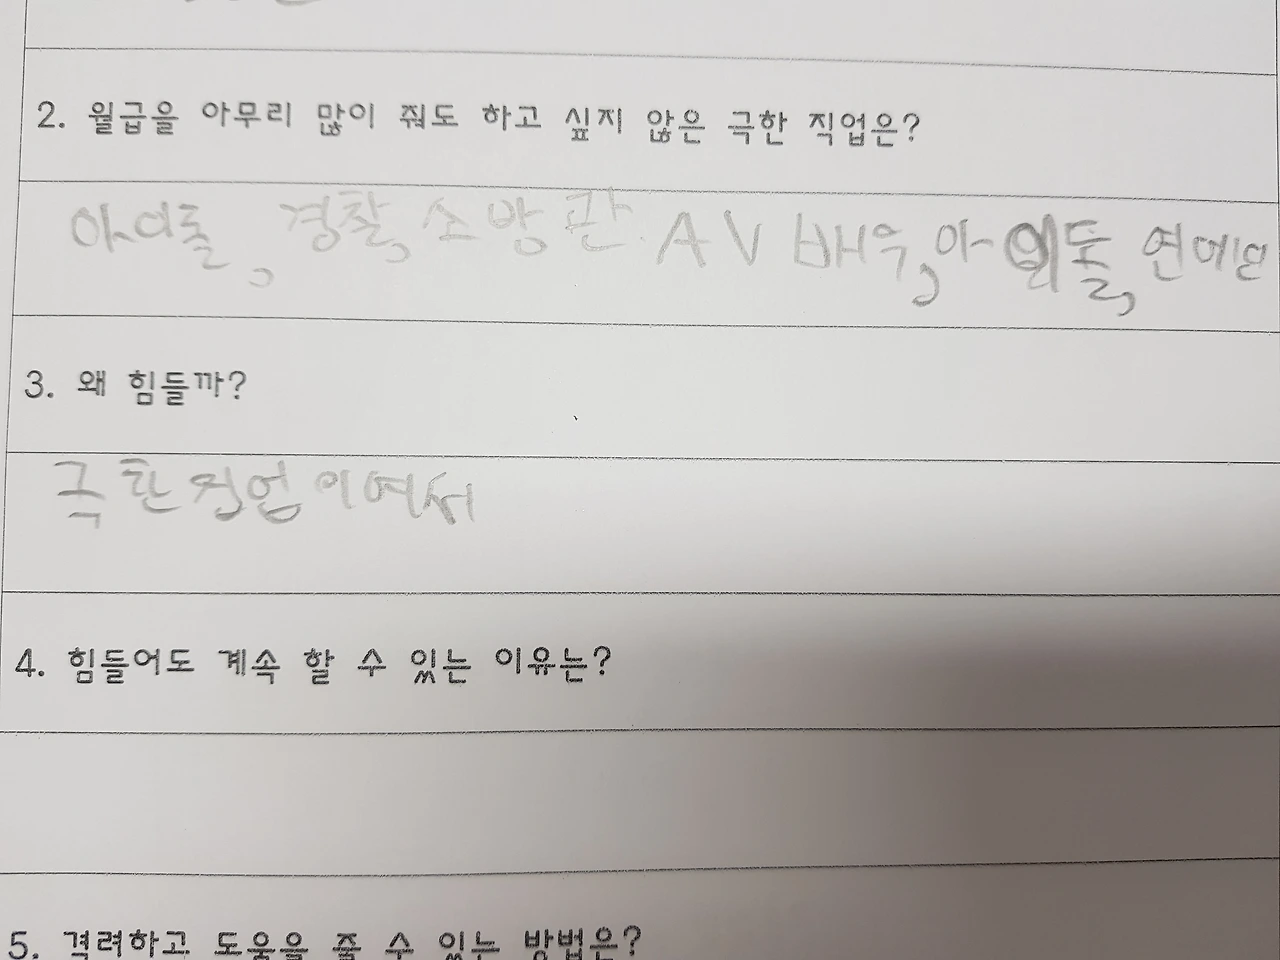 2. 월급을 아무리 많이 줘도 하고 싶지 않은 극한 직업은?
아이돌, 경찰, 소방관. AV 배우, 아이돌, 연예인
3. 왜 힘들까?
극한직업이여서
4. 힘들어도 계속 할 수 있는 이유는?
5. 격려하고 도움을 줄 수 있는 방법은?